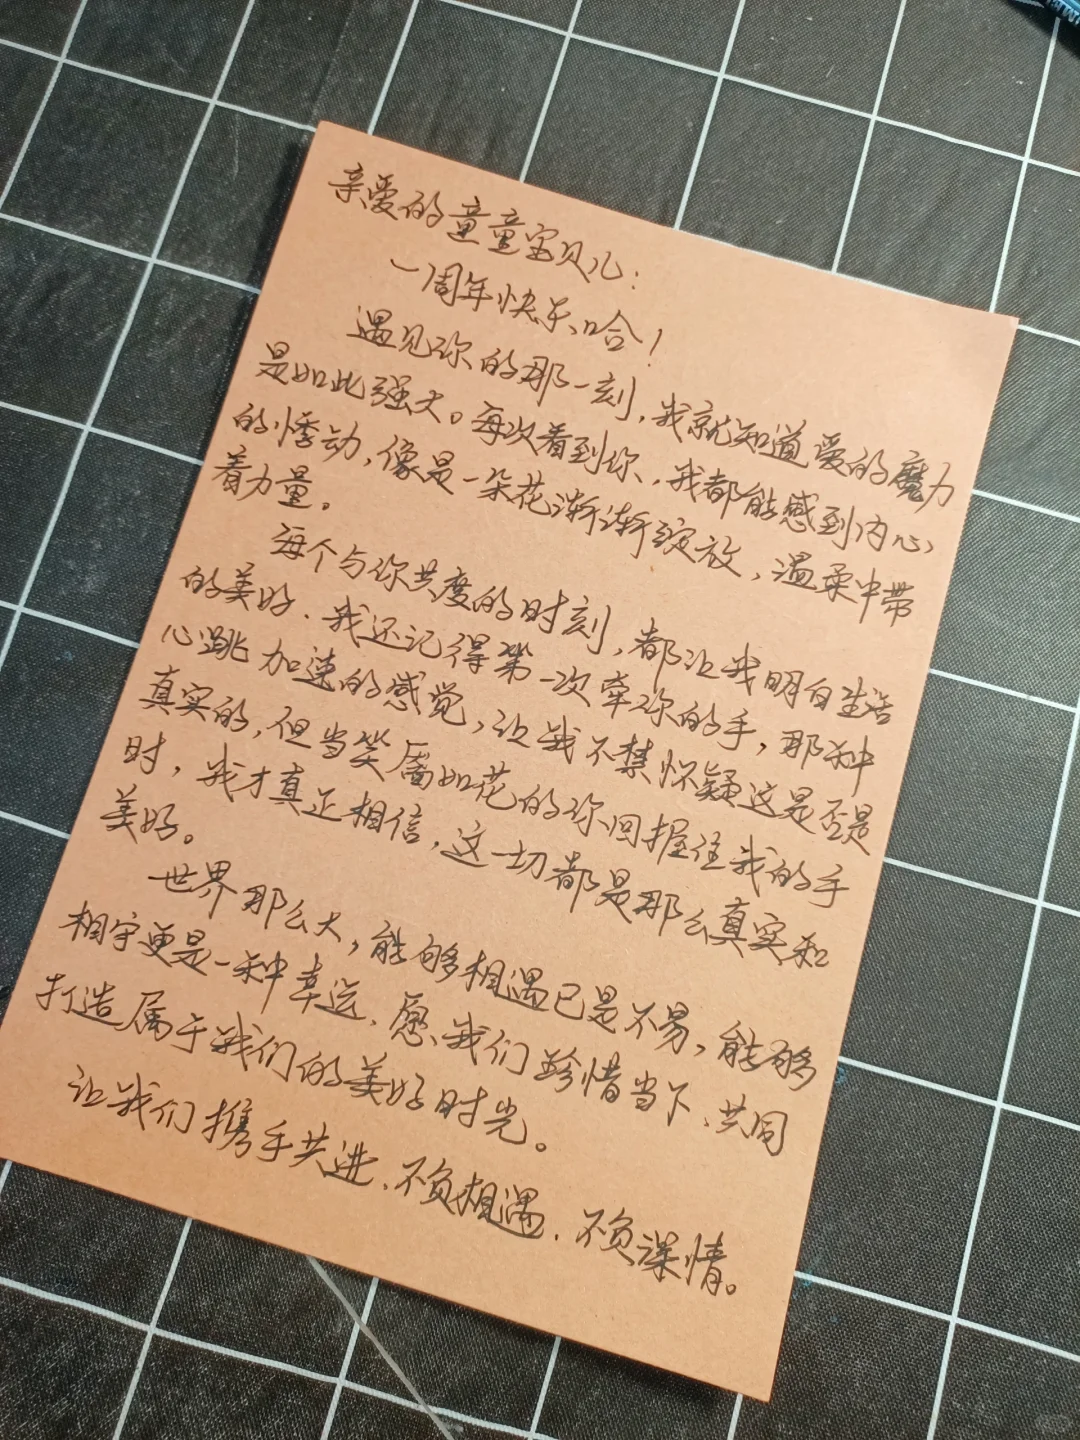 亲爱的童童宝贝儿：
一周年快乐哈！
遇见你的那一刻，我就知道爱的魔力
是如此强大。每次看到你，我都能感到内心
的悸动，像是一朵花渐渐绽放，温柔中带
着力量。
每个与你共度的时刻，都让我明白生活
的美好．我还记得第一次牵你的手，那种
心跳加速的感觉，让我不禁怀疑这是否是
真实的，但当笑靥如花的你回握住我的手
时，我才真正相信，这一切都是那么真实和
美好。
世界那么大，能够相遇已是不易，能够
相守更是一种幸运．愿我们珍惜当下、共同
打造属于我们的美好时光。
让我们携手共进．不负相遇．不负深情。